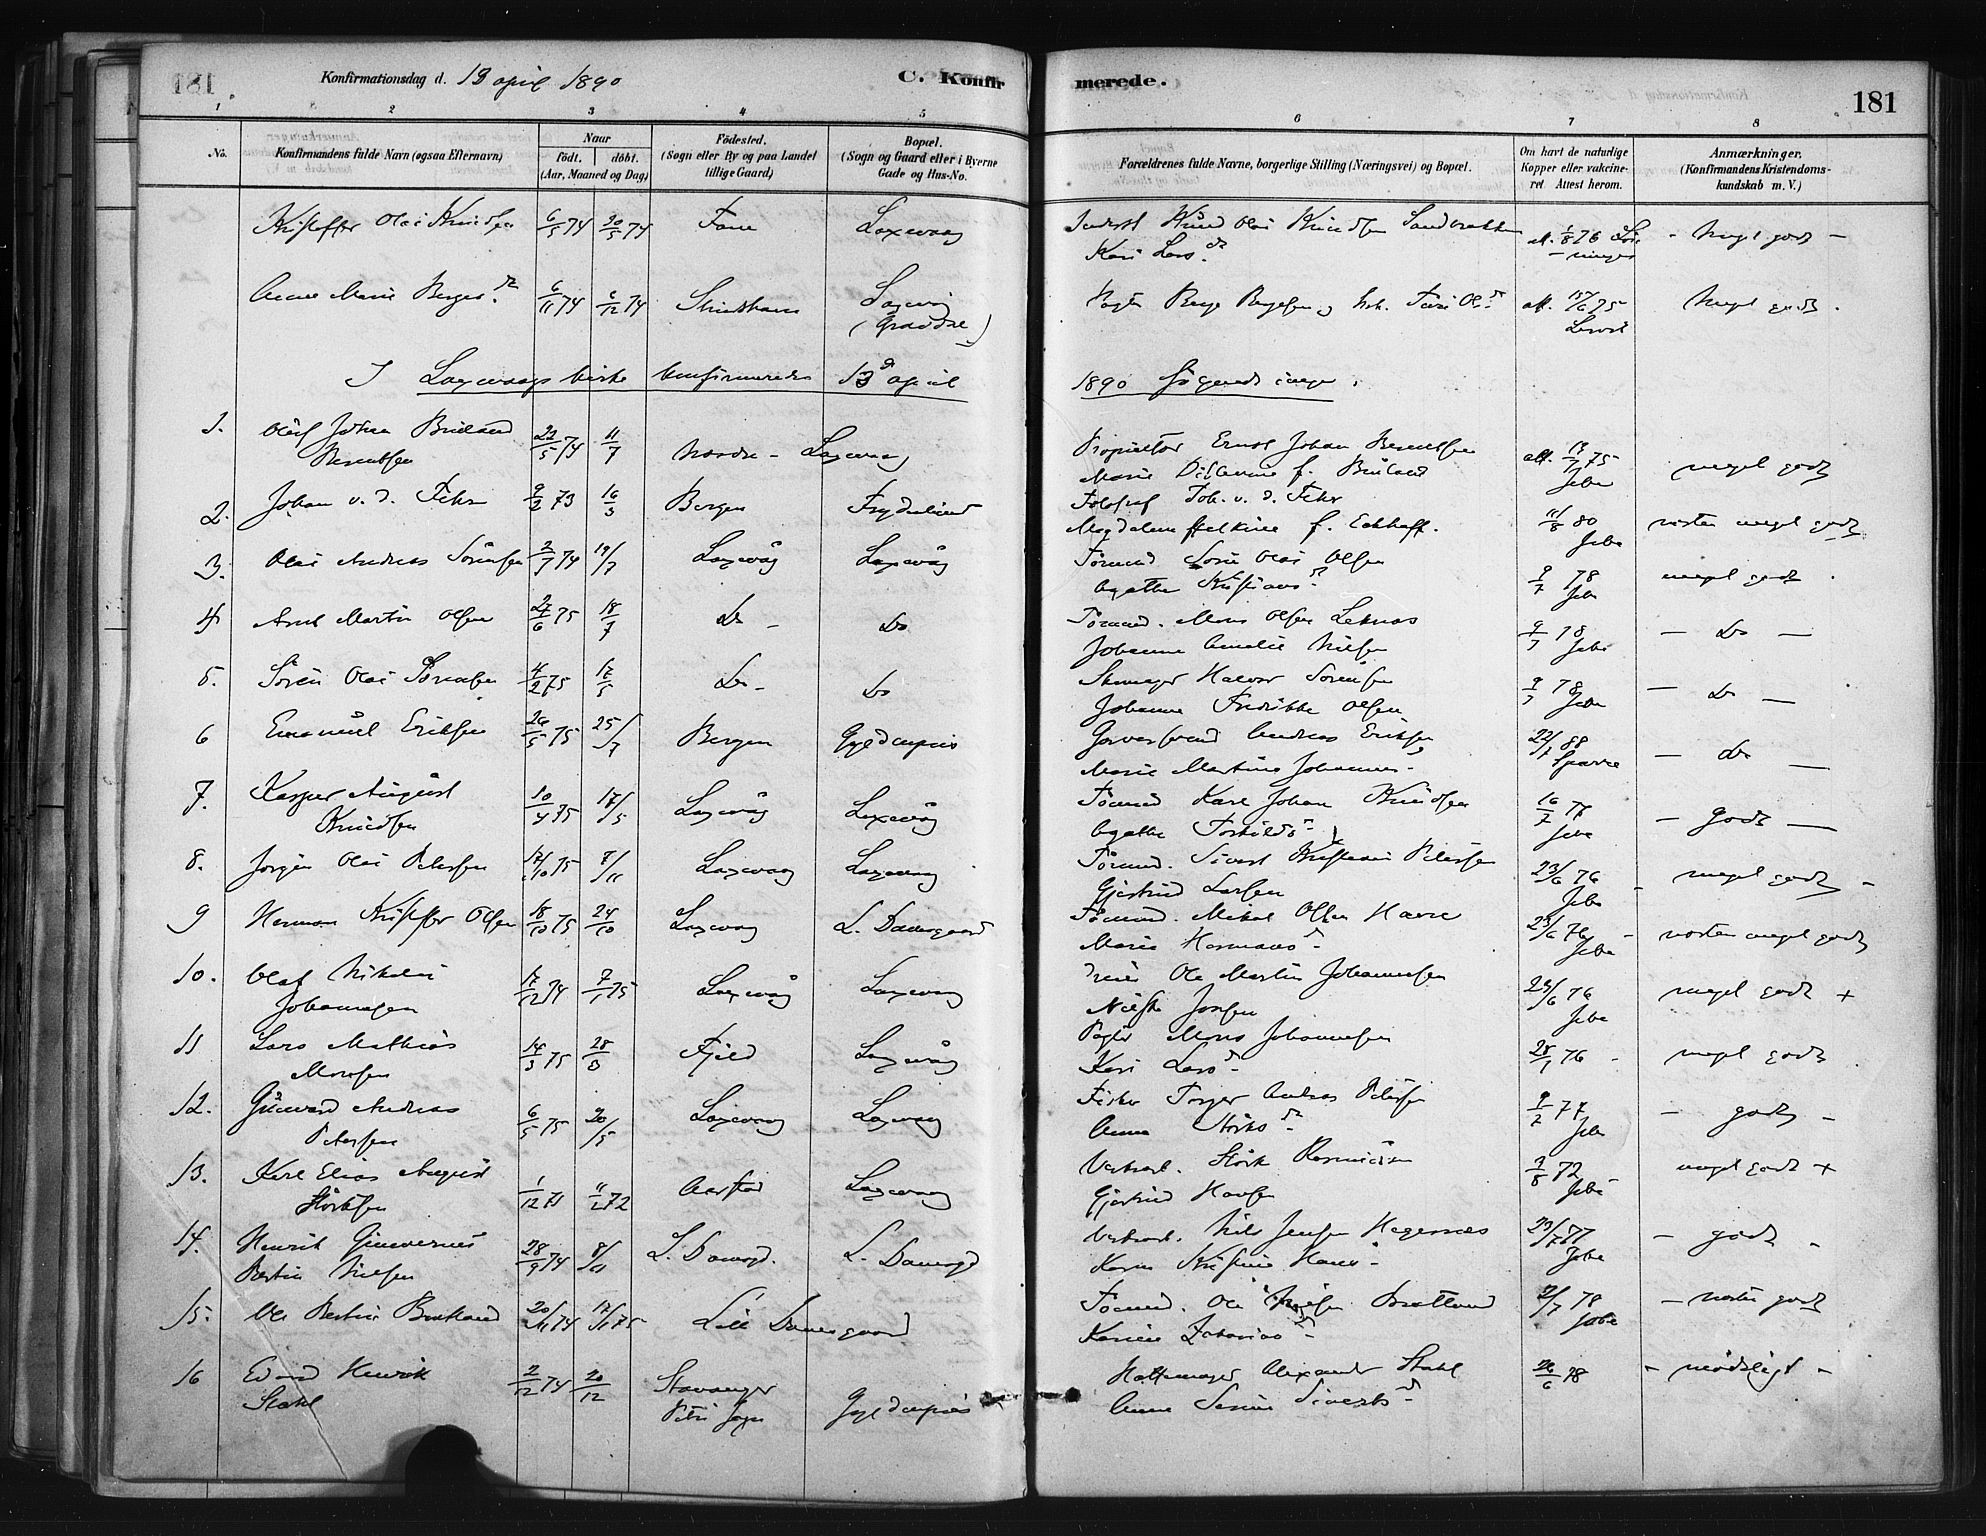 181
Konfirmationsdag d. 13 april 1890
C. Konfir
merede.
181
1 2 3 4 5 6 7 8
No.
Konfirmandens fulde Navn (ogsaa Efternavn)
Naar
födt. döbt.
(Aar, Maaned og Dag)
Födested.
(Sogn eller By og paa Landet
tillige Gaard)
Bopæl.
(Sogn og Gaard eller i Byerne
Gade og Hus-No.
Forældrenes fulde Navne, borgerlige Stilling (Næringsvei) og Bopæl.
Om havt de naturlige
Kopper eller vakcine-
ret. Attest herom.
Anmærkninger.
(Konfirmandens Kristendoms-
kundskab m. V.)
Kristoffer Olai Knudsen 6/5 74 20/5 74 Fane Laxevaag Knud Olai Knudsen Sandbrekke att. 1/8 76 - Meget godt -
Kari Lars d.
Anna Marie Berges d. 6/11 74 6/12 74 Laxevåg Berge Bergesen att. 75 Meget godt.
(Gravdal)
I Laxevaags kirke konfirmeredes 13 april 1890 følgende unge:
1. Olaf Johan Bruland Nordre - Laxevaag Proprietær Ernst Johan Berentsen att. 75 meget godt
Berentsen 22/5 74 11/7 Marie f. Bruland Jebe
2. Johan v. d. Fehr 9/2 73 16/3 Bergen Frydenlund Joh. v. d. Fehr 11/8 80 næsten meget godt
Magdalena f. Eckhoff. Jebe
3. Olai Andreas Sørensen 2/7 74 19/7 Laxevåg Laxevåg Tømmd. Olai Olsen 9/7 78 meget godt.
Agathe Kristians d. Jebe
4 Arnt Martin Olsen 27/6 75 18/7 Do - Do Tømmd. Mons Olsen Leknes 9/7 78 - Do -
Johanne Amalie Nielsen Jebe
5. Søren Olai Sørensen 4/2 75 17/5 Do - Do Skomager Halvor Sørensen 9/7 78 - Do -
Johanne Fredrikke Olsen Jebe
6 Emanuel Eriksen 26/5 75 25/7 Bergen Gyldenpris Garversvend Andreas Eriksen 22/7 88 - Do -
Marie Martine Johannes Sparre
7. Kasper August 10/4 75 17/5 Laxevåg Laxevåg Tømmd Karl Johan Knudsen 16/7 77 - Godt -
Knudsen Agathe Torkilds d. Jebe
8. Jørgen Olai Petersen 17/10 75 7/11 Laxevaag Laxevaag Tømmd. Sivert Kristian Petersen 23/6 76 - meget godt -
Gjertrud Larsen Jebe
9 Herman Kristoffer Olsen 18/10 75 24/10 Laxevaag L. Damsgaard Tømmd. Mikal Olsen Havre 23/6 76 - næsten meget godt
Marie Hermans d. Jebe
10. Olaf Nikolai 17/12 74 7/1 75 Laxevåg Laxevaag Ole Martin Johannesen 23/6 76 meget godt +
Johannesen Jebe
11 Lars Mathias 14/3 75 28/3 Fjeld Laxevåg Mons Johannesen 28/1 76 - meget godt
Monsen Kari Lars d.
12. Gunvard Andreas 6/5 75 20/5 Laxevaag Laxevaag Fisker Torger Andreas Petersen 9/7 77 - godt -
Petersen Anna Størks d. Jebe
13. Karl Elias August 1/12 71 11/2 72 Aarstad Laxevaag Størk Rasmussen 7/8 72 meget godt +
Størksen Gjertrud Hansen Jebe
14. Henrik 28/9 74 8/11 L. Damsgd. L. Damsgd Nils Jensen Hegernæs 23/7 87 - godt -
Bertin Nielsen Karen Kristine Hans Jebe
15. Ole Bertin Bratland 20/11 74 17/1 75 Lill Damsgaard Tømmd. Ole Bratland 2/7 78 - næsten godt
Karine Zakarias d. Jebe
16 Edvard Henrik 2/12 74 20/12 Stavanger Gyldenpris Hattemager Alexander Stahl 26/6 78 - nødeligt -
Stahl Petri Sogn Anne Serine Siverts d.